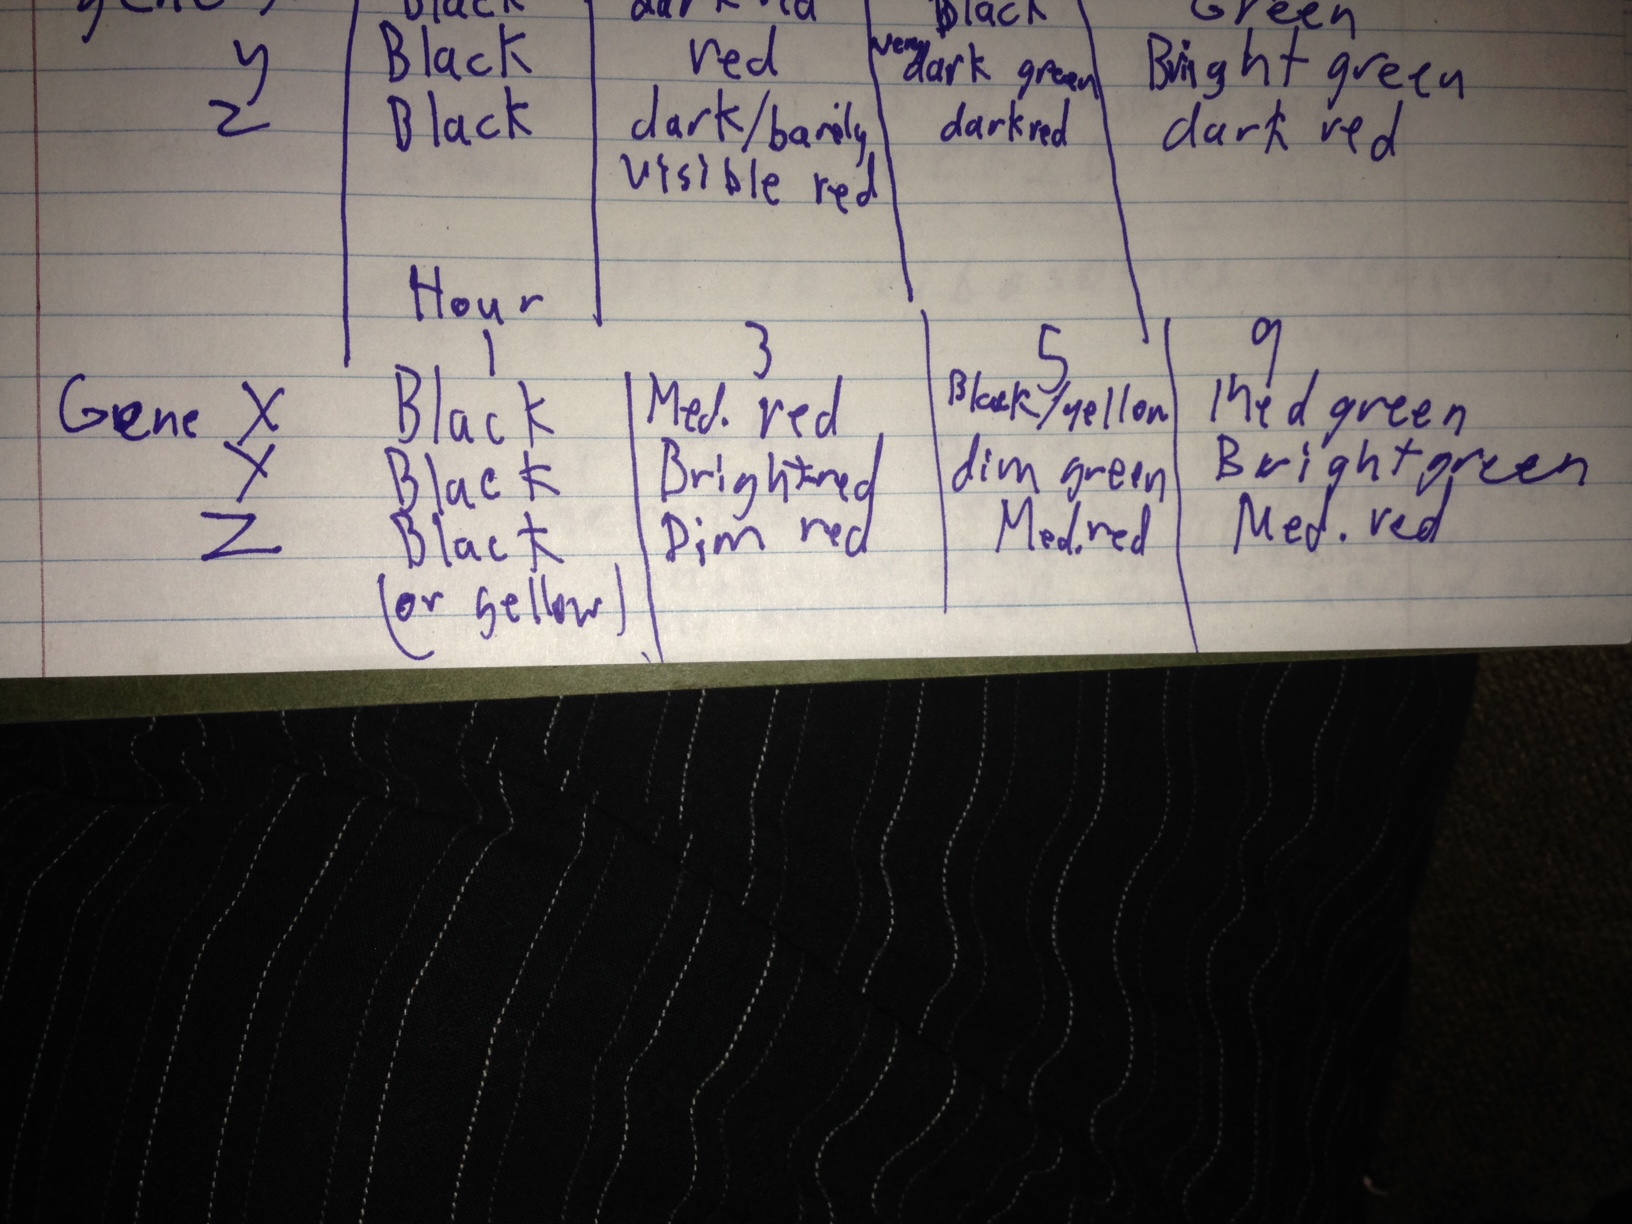 gene Black dark red Black Green
y Black red very dark green Bright green
z Black dark/barily darkred dark red
visible red
Hour
1 3 5 9
Gene X Black Med. red Black/yellow Med green
Y Black Bright red dim green Bright green
Z Black Dim red Med. red Med. red
(or yellow)